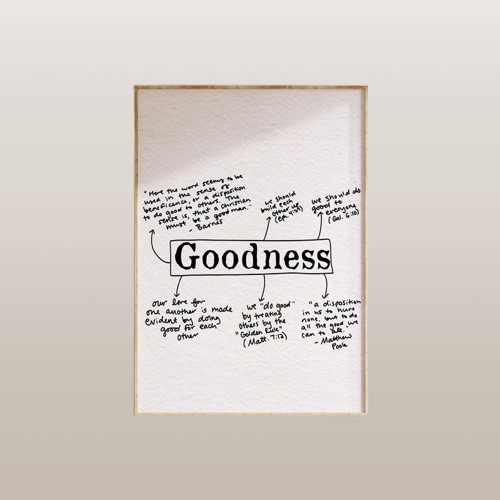 "Here the word seems to be
used in the sense of
beneficence, or a disposition
to do good to others. The
sense is, that a Christian
must be a good man."
- Barnes
we should
build each
other up
(Ep. 4:29)
we should do
good to
everyone
(Gal. 6:10)
Goodness
our love for
one another is made
evident by doing
good for each
other
we "do good"
by treating
others by the
"Golden Rule"
(Matt. 7:12)
"a disposition
in us to hurt
none, but to do
all the good we
can to all.
- Matthew
Poole